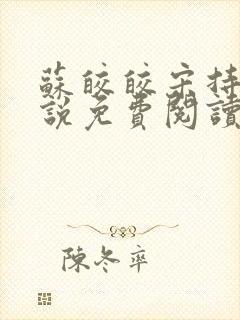 蘇皎皎宋持
說免費閱讀
陳冬率